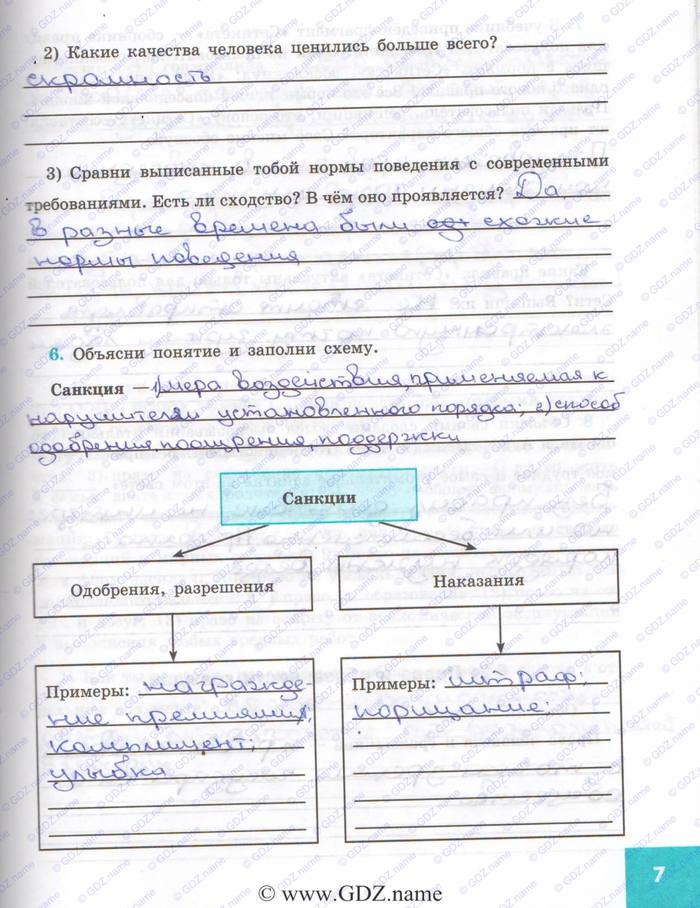 2) Какие качества человека ценились больше всего?
скромность
3) Сравни выписанные тобой нормы поведения с современными
требованиями. Есть ли сходство? В чём оно проявляется? Да
в разные времена были схожие
нормы поведения
6. Объясни понятие и заполни схему.
Санкция — 1) мера воздействия, применяемая к
нарушителям установленного порядка; 2) способ
одобрения, поощрения, поддержки
Санкции
Одобрения, разрешения
Наказания
Примеры: награжде-
ние премиями;
комплимент;
улыбка
Примеры: штраф;
порицание;
7
© www.GDZ.name